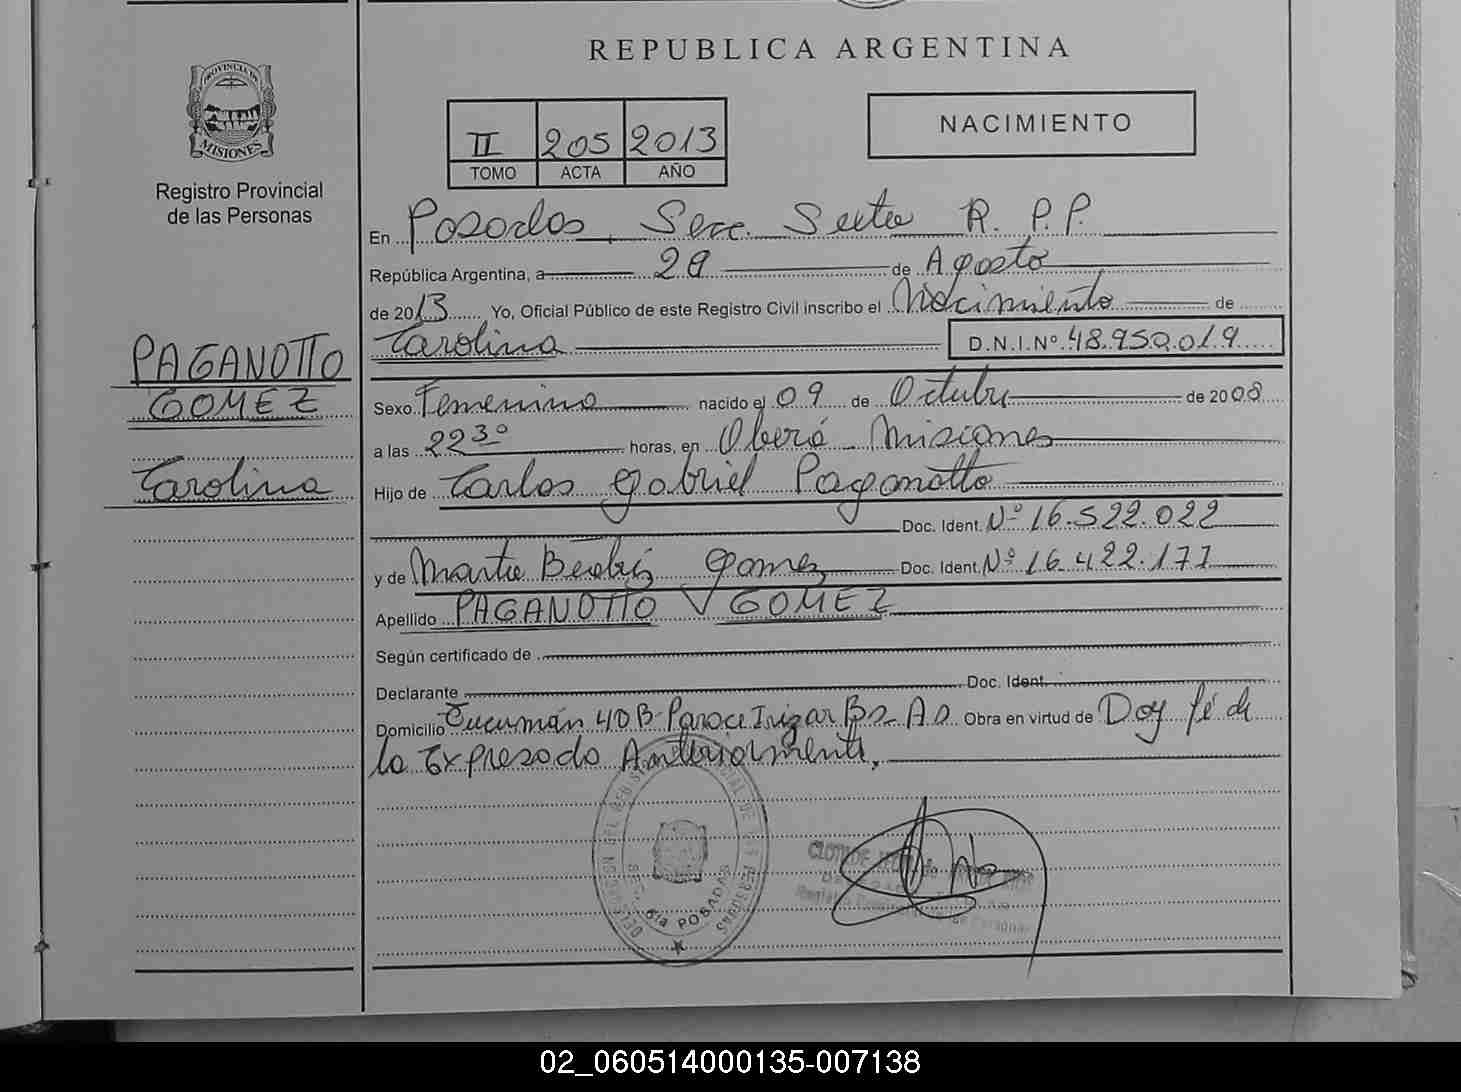 REPUBLICA ARGENTINA
PROVINCIA DE
MISIONES
Registro Provincial
de las Personas
II 205 2013
TOMO ACTA AÑO
NACIMIENTO
En Posadas, Secc. Sexta R. P. P.
República Argentina, a 28 de Agosto
de 2013 Yo, Oficial Público de este Registro Civil inscribo el Nacimiento de
Carolina D.N.I.Nº 48.950.019
PAGANOTTO
GOMEZ
Carolina
Sexo Femenino nacido el 09 de Octubre de 2008
a las 22 30 horas, en Oberá Misiones
Hijo de Carlos Gabriel Paganotto
Doc. Ident. Nº 16.522.022
y de Marta Beatriz Gomez Doc. Ident. Nº 16.422.177
Apellido PAGANOTTO GOMEZ
Según certificado de
Declarante Doc. Ident.
Domicilio Tucumán 40 B- Irizar Bs-As Obra en virtud de Doy fé de
lo Expresado Anteriormente.
SECC. 6ta POSADAS
CLOTILDE
02_060514000135-007138